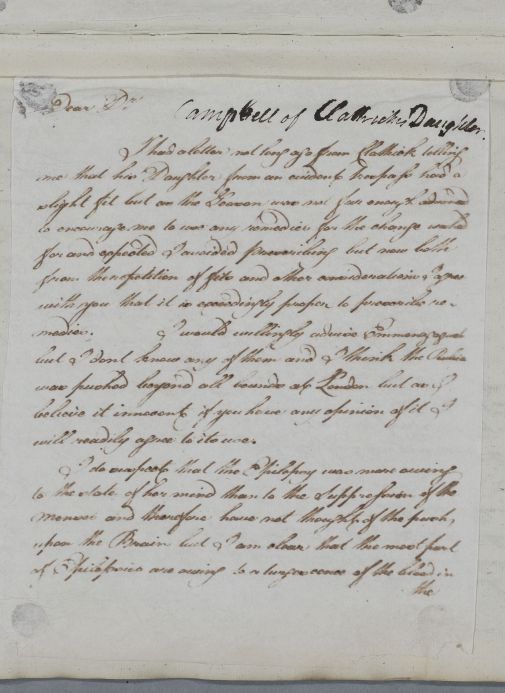 Dear Dr.
Campbell of Clathick's Daughter.
I had a letter not long ago from Clathick telling
me that his Daughter from an evident had a
slight fit but as the Season was not far enough advanced
to encourage me to use any remedies for the change waited
for and expected I avoided prescribing but now both
from the repetition of fits and other considerations I agree
with you that it is exceedingly proper to prescribe re-
medies. I would willingly advise Emmenagogues
but I dont know any of them and I think the
was pushed beyond all bounds at London but as I
believe it innocent if you have any opinion of it I
will readily agree to its use.
I do suspect that the Epilepsy was more owing
to the state of her mind than to the Suppression of the
Menses and therefore have not thought of the push
upon the Brain but I am clear that the most part
of Epilepsies are owing to a turgescence of the blood in
the